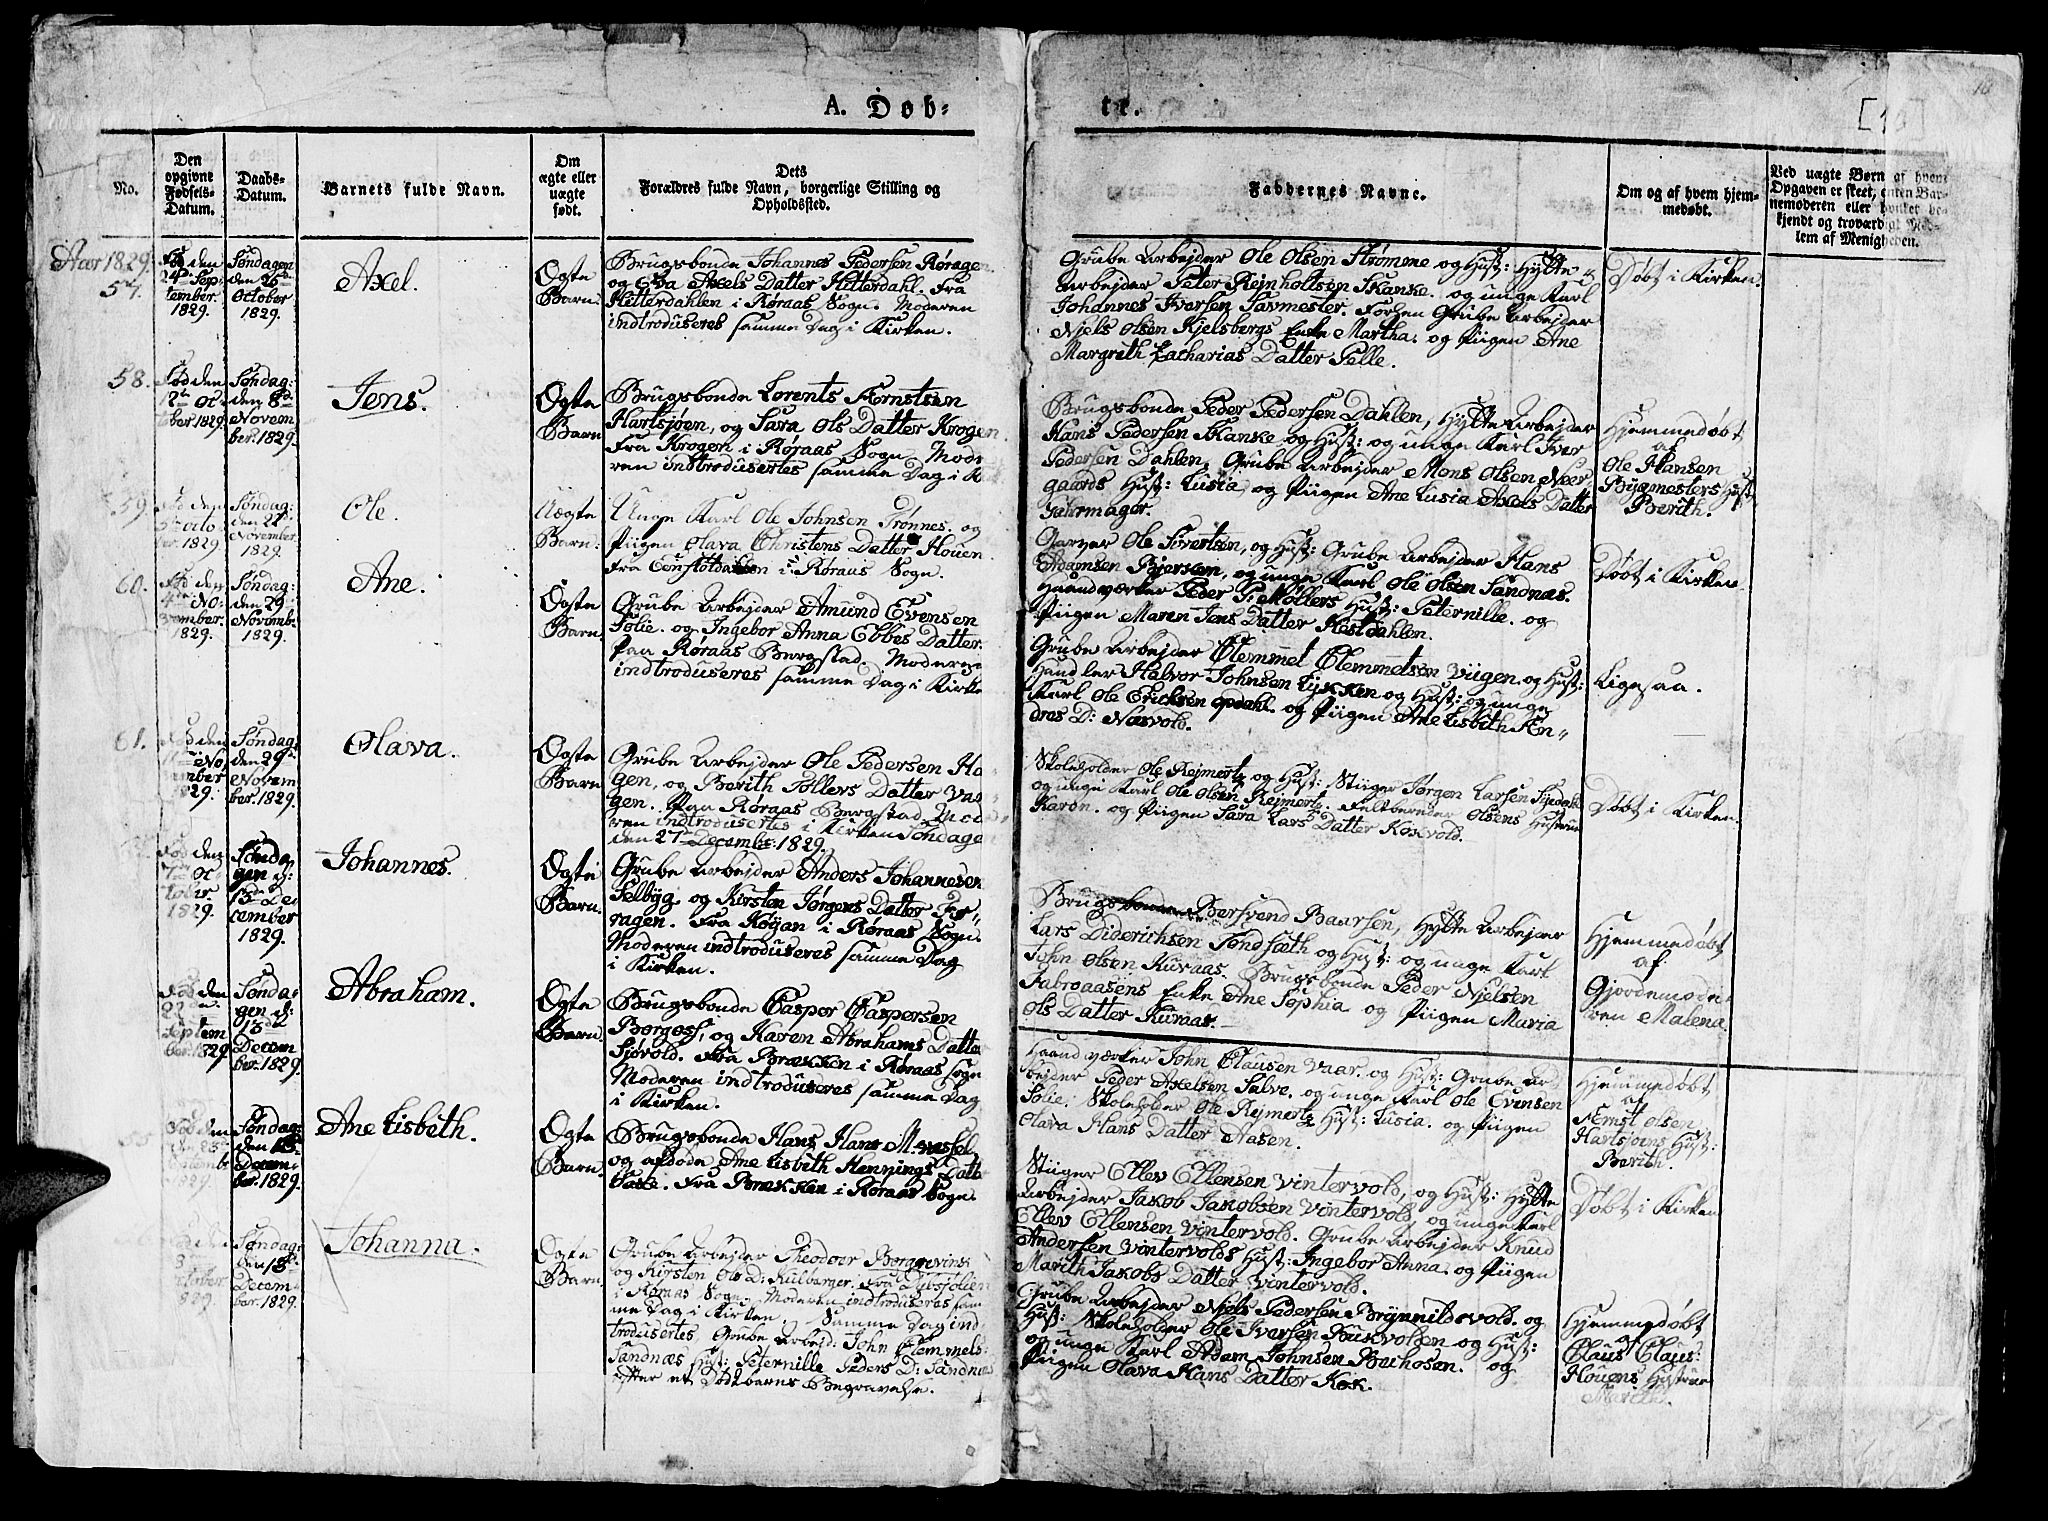 A. Døb-
te.
No.
Den opgivne Fødsels-Datum.
Daabs-Datum.
Barnets fulde Navn.
Om ægte eller uægte født.
Dets Forældres fulde Navn, borgerlige Stilling og Opholdssted.
Faddernes Navne.
Om og af hvem hjemmedøbt.
Ved uægte Børn af hvem Opgaven er skeet, enten Barnemoderen eller hvilket bekjendt og troværdigt Medlem af Menigheden.
Aar 1829.
57.
Fød den
24de Sep-
tember.
1829.
Søndagen
den 25de
October
1829.
Axel.
Ægte
Barn.
Brugsbonde Johannes Pedersen Røragen
og Eva Axels Datter Hitterdahl. Fra
Hitterdahlen i Røraas Sogn. Moderen
indtroduseres samme Dag i Kirken.
Grube Arbejder Ole Olsen Strømme og Hust: Hytte
Arbejder Peter Rejnholtsen Skanke. og unge Karl
Johannes Iversen Savmester. Forhen Grube Arbejder
Njels Olsen Kjelsbergs Enke Martha. og Piigen Ane
Margreth Zacharias Datter Pelle.
Døbt i Kirken.
58.
Fød den
12te Oc-
tober 1829.
Søndag:
den 8de
Novem
ber. 1829.
Jens.
Ægte
Barn
Brugsbonde Lorents Ærnstsen
Hartsjøen, og Sara Ols Datter Krogen
Fra Krogen i Røraas Sogn. Mode
ren indtrodusertes samme Dag i
Brugsbonde Peder Pedersen Dahlen, Hytte Arbejder
Hans Pedersen Skanke og Hust: og unge Karl Iver
Pedersen Dahlen, Grube Arbejder Mons Olsen Neer
gaards Hust: Lusia, og Piigen Ane Lusia Axels Datter
Gahrmager.
Hjemmedøbt
af
Ole Hansen
Bygmesters Hust:
Berith.
59.
1829.
Søndag:
den 22de
November.
1829.
Ole.
Uægte
Barn:
Unge Karl Ole Johnsen Trønnes. og
Piigen Olava Christens Datter Houen
Fra i Røraas Sogn.
Garver Ole Sivertsen, og Hust: Grube Arbejder Hans
Adamsen Bjersen, og unge Karl Ole Olsen Sandnæs.
Haandværker Peder P: Møllers Hust: Peternille. og
Piigen Maren Jens Datter Kestdahlen.
Døbt i Kirken
60.
Fød den
4de No
vember.
1829.
Søndag:
den 29
Novemb:
1829.
Ane.
Ægte
Barn
Grube Arbejder Amund Evensen
Solie. og Ingebor Anna Ebbes Datter.
Paa Røraas Bergstad. Moderen
indtroduseres samme Dag i Kirke
Grube Arbejder Clemmet Clemmetsen Viigen. og Hust:
Handler Halvor Johnsen Lykken og Hust: og unge
Karl Ole Ericksen Opdahl. og Piigen Ane Lisbeth An-
dres D: Næsvold.
Ligesaa.
61.
Fød den
No
vember
1829.
Søndag:
den 29de
Novem
ber. 1829.
Olava.
Ægte
Barn
Grube Arbejder Ole Pedersen Ha
gen, og Berith Tollers Datter
gen. Paa Røraas Bergstad Mode
ren indtrodusertes i Kirken Søndagen
den 27de Decembr: 1829.
Skoleholder Ole Rejmertz og Hust: Stiiger Jørgen Larsen
og unge Karl Ole Olsen Rejmertz. Feltbereder Olsens Hustrue
Karen. og Piigen Sara Lars Datter Kokvold.
Døbt i Kirken.
Fød den
7de Oc-
tober
1829.
Sønda-
gen d:
13de De
cember
1829.
Johannes.
Ægte
Barn.
Grube Arbejder Anders Johannesen
Selbyg og Kirsten Jørgens Datter
ragen. Fra Røraas Sogn.
Moderen indtroduseres samme Dag
i Kirken.
Bersvend Baarsen, Hytte Arbejder
Lars Diderichsen Tøndsæth og Hust: og unge Karl
John Olsen Kuraas. Brugsbonde Peder Njelsen
Fabroaasens Enke Ane Sophia og Piigen Maria
Ols Datter Kuraas.
Hjemmedøbt
af
Gjordemode-
ren Malena
Fød den
22de
Septem
ber. 1829
Sønda-
gen d:
13de
Decem
ber. 1829.
Abraham.
Ægte
Barn
Brugsbonde Casper Caspersen
Borgos, og Karen Abrahams Datter
Sjøvold. Fra Brækken i Røraas Sogn
Moderen indtroduseres samme Dag
i Kirken.
Haandværker John Clausen Vaar. og Hust: Grube Ar-
bejder Peder Axelsen Salve. og unge Karl Ole Evensen
Solie. Skoleholder Ole Rejmertz Hust: Lusia. og Piigen
Olava Hans Datter Aasen.
Hjemmedøbt
af
Ærnst Olsen
Hartsjøens Hust:
Berith.
Fød den
d: 23de
1829.
Søndag:
den 13de
Decem-
ber. 1829.
Ane Lisbeth.
Ægte
Barn.
Brugsbonde Hans Hans
og afdøde Ane Lisbeth Hennings Datte
Fra Brækken i Røraas Sogn
Stiiger Ellev Ellensen Vintervold, og Hust: Hytte
Arbejder Jakob Jakobsen Vintervold, og unge Karl
Ellev Ellensen Vintervold. Grube Arbejder Knud
Andersen Vintervolds Hust: Ingebor Anna. og Piigen
Marith Jakobs Datter Vintervold.
Døbt i Kirken
1829.
Søndag:
den 13de
Decem-
ber. 1829.
Johanna.
Ægte
Barn.
Grube Arbejder Theodoor Borggrevink
og Kirsten Ols D: Kulbærger. Fra
i Røraas Sogn. Moderen indtroduseres sam
me Dag i Kirken. Samme Dag ind-
trodusertes Grube Arbejd: John Clemmets:
Sandnæs Hust: Peternille Peders D: Sandnæs
efter et Dødtbarns Begravelse.
Grube Arbejder Njels Pedersen Brynnildsvold. og
Hust: Skoleholder Ole Iversen Bukvolden og Hust:
og unge Karl Adam Johnsen Buchosen. og
Piigen Olava Hans Datter Kok.
Hjemmedøbt
af
Claus Claus:
Houens Hustrue
Marith.